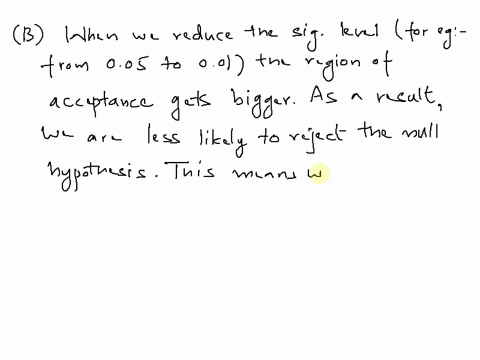 (B) When we reduce the sig. level (for eg:-
from 0.05 to 0.01) the region of
acceptance gets bigger. As a result,
we are less likely to reject the null
hypothesis. This means w